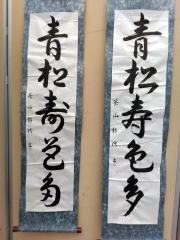 青松寿色多
青松寿色多